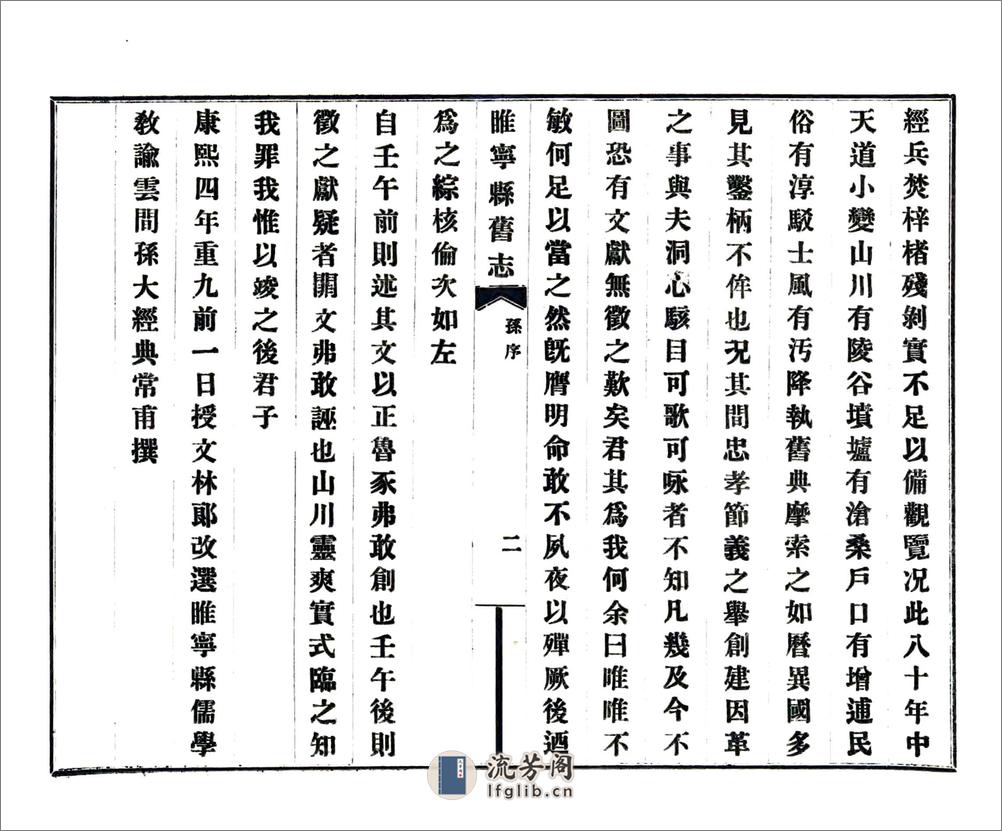 經兵焚梓楮殘剝實不足以備觀覽况此八十年中
天道小變山川有陵谷墳壚有滄桑戶口有增逋民
俗有淳駁士風有汚降執舊典摩索之如曆異國多
見其鑿柄不侔也况其間忠孝節義之舉創建因革
之事與夫洞心駭目可歌可咏者不知凡幾及今不
圖恐有文獻無徵之歎矣君其爲我何余曰唯唯不
敏何足以當之然旣膺明命敢不夙夜以殫厥後迺
睢寧縣舊志
孫序
二
爲之綜核倫次如左
自壬午前則述其文以正魯豕弗敢創也壬午後則
徵之獻疑者闕文弗敢誣也山川靈爽實式臨之知
我罪我惟以竣之後君子
康熙四年重九前一日授文林郎改選睢寧縣儒學
敎諭雲間孫大經典常甫撰
流芳阁
lfglib.cn